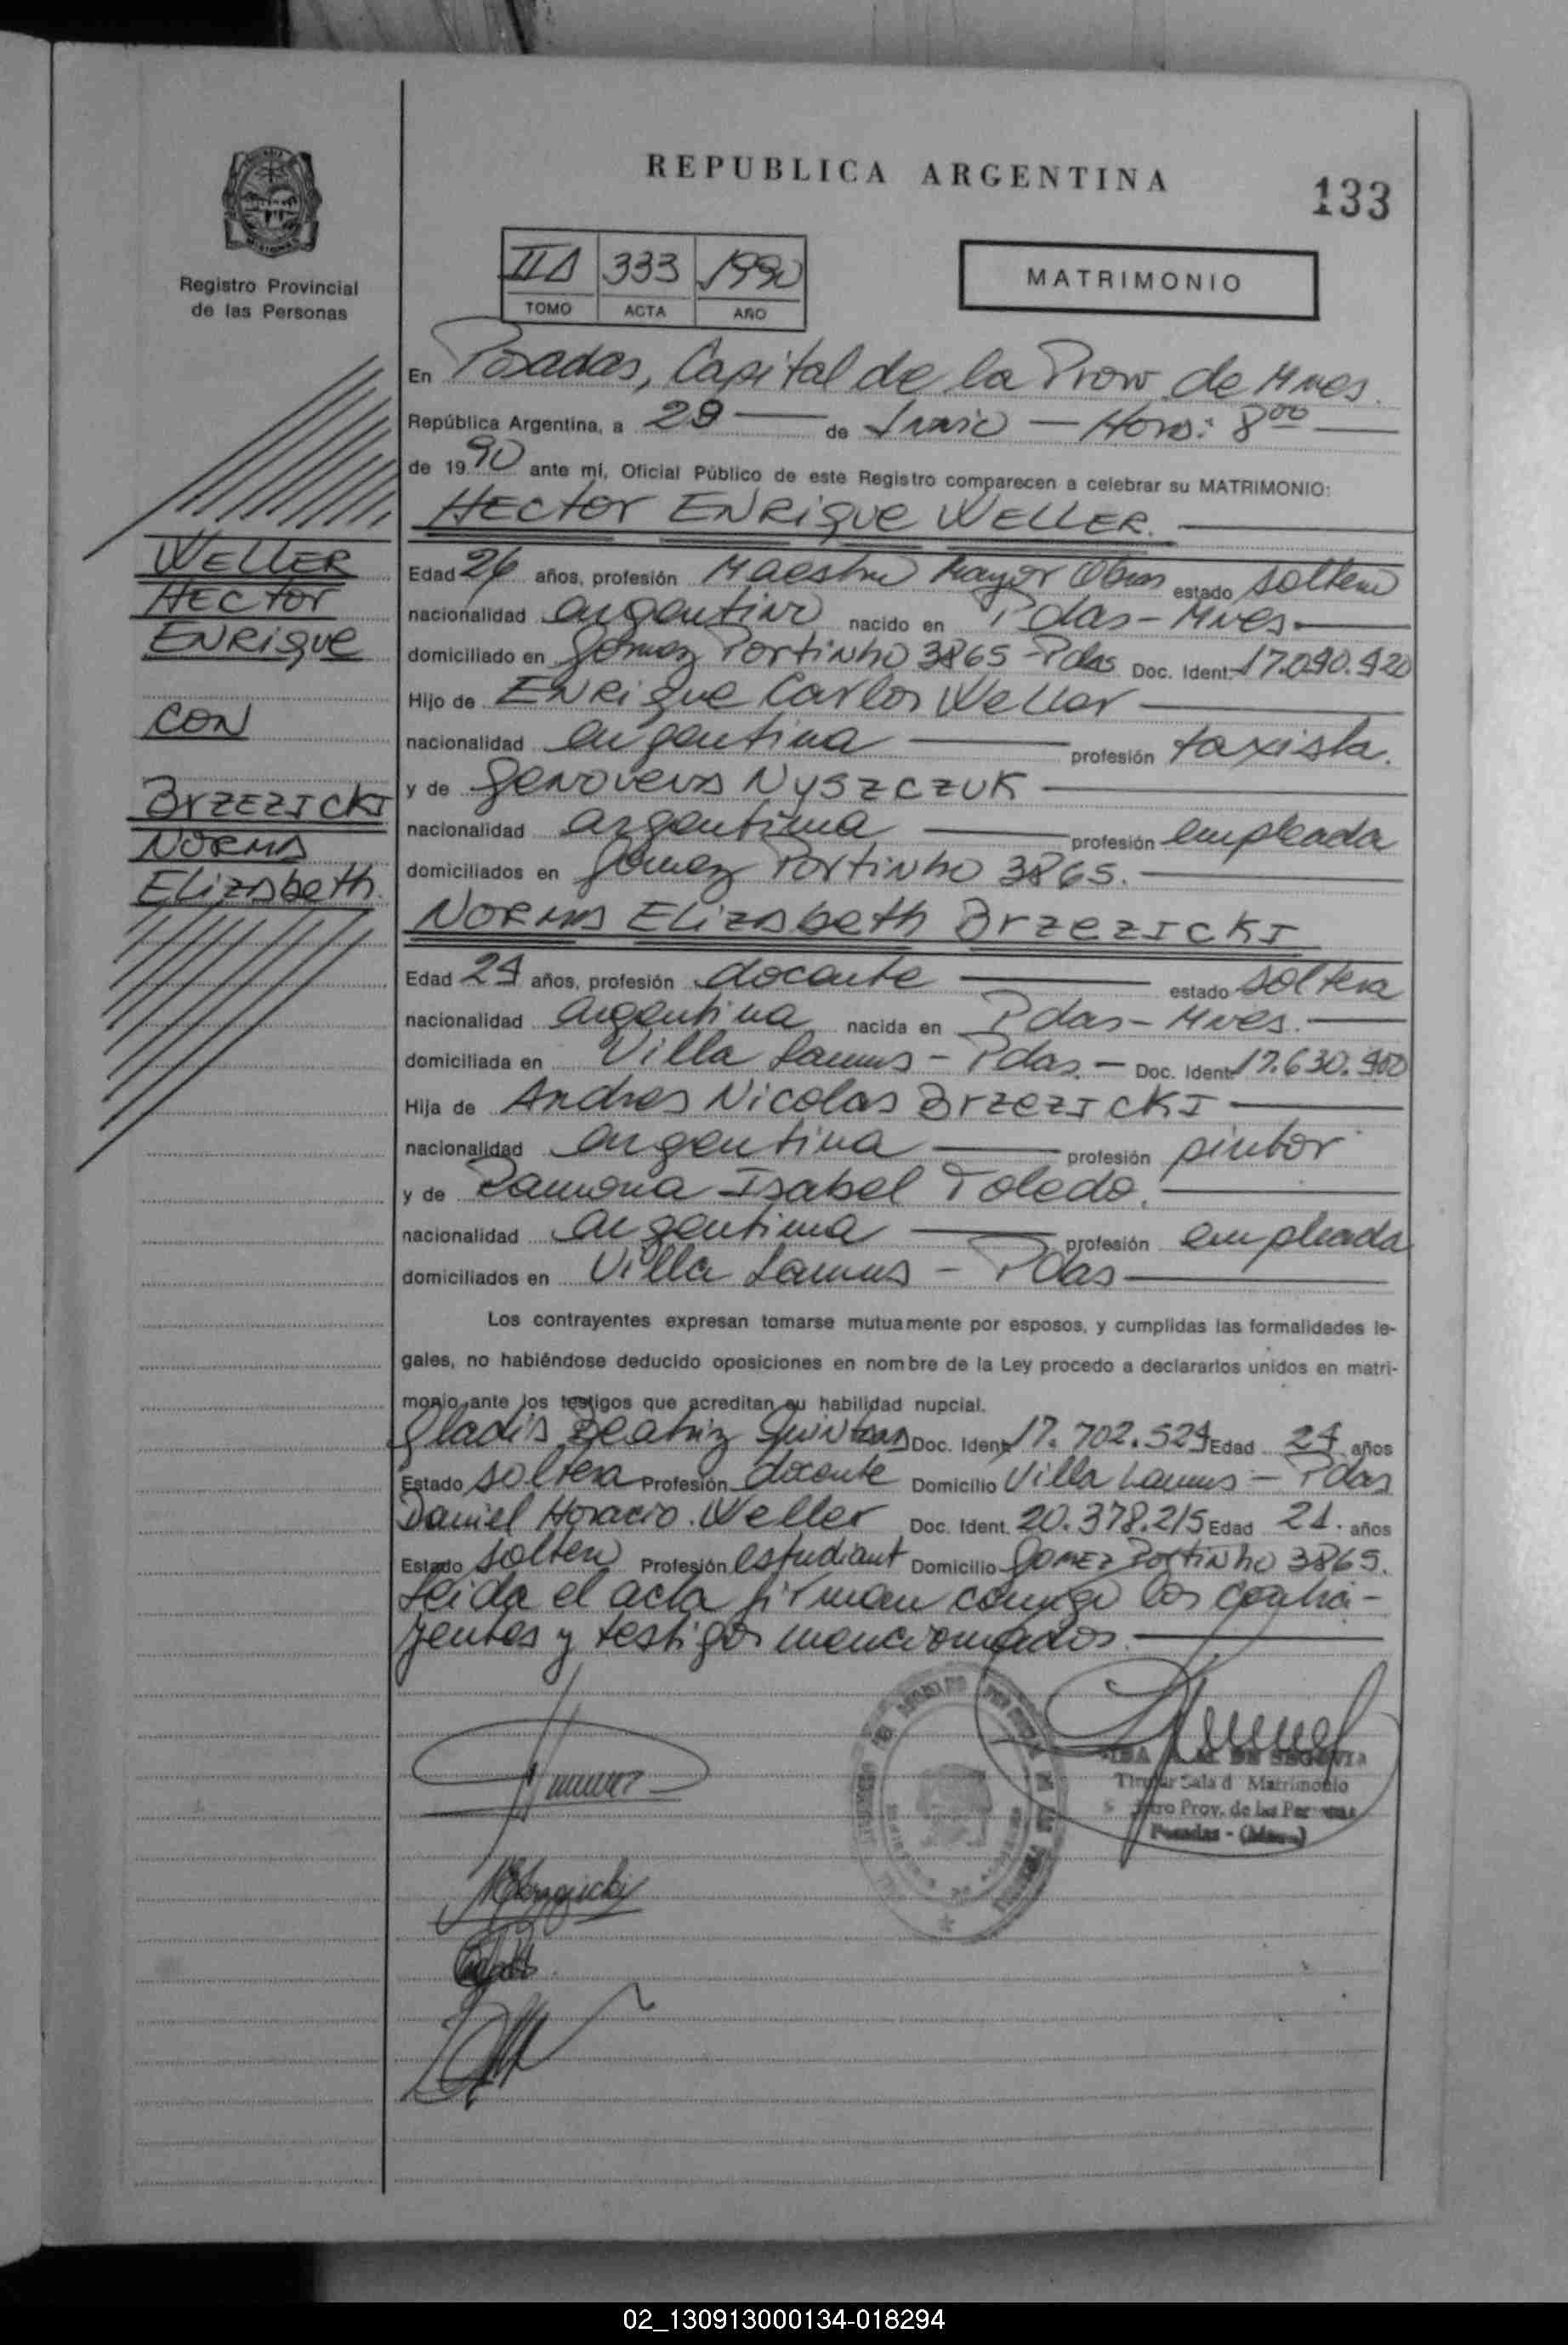 REPUBLICA ARGENTINA
133
Registro Provincial
de las Personas
II 333 1990
TOMO ACTA AÑO
MATRIMONIO
En Posadas, Capital de la Prov. de Mnes.
República Argentina, a 29 de Junio Hora: 8 00
de 1990 ante mí, Oficial Público de este Registro comparecen a celebrar su MATRIMONIO:
HECTOR ENRIQUE WELLER.
WELLER
HECTOR
ENRIQUE
CON
BRZEZICKI
NORMA
Elizabeth.
Edad 26 años, profesión Maestro Mayor Obras estado soltero
nacionalidad argentino nacido en Pdas-Mnes.
domiciliado en Gómez Portinho 3865-Pdas Doc. Ident. 17.090.920
Hijo de ENRIQUE Carlos Weller
nacionalidad argentina profesión taxista.
y de Genoveva NYSZCZUK
nacionalidad argentina profesión empleada
domiciliados en Gómez Portinho 3865.
NORMA Elizabeth Brzezicki
Edad 24 años, profesión docente estado soltera
nacionalidad argentina nacida en Pdas-Mnes.
domiciliada en Villa Lanus - Pdas. - Doc. Ident. 17.630.900
Hija de Andres Nicolas Brzezicki
nacionalidad argentina profesión pintor
y de Ramona Isabel Toledo.
nacionalidad argentina profesión empleada
domiciliados en Villa Lanus - Pdas
Los contrayentes expresan tomarse mutuamente por esposos, y cumplidas las formalidades le-
gales, no habiéndose deducido oposiciones en nombre de la Ley procedo a declararlos unidos en matri-
monio ante los testigos que acreditan su habilidad nupcial.
Gladis Beatriz Quintana Doc. Ident. 17.702.524 Edad 24 años
Estado soltera Profesión docente Domicilio Villa Lanus - Pdas
Daniel Horacio Weller Doc. Ident. 20.378.215 Edad 21. años
Estado soltero Profesión estudiant Domicilio Gomez Portinho 3865.
Leida el acta firman conmigo los contra-
yentes y testigos mencionados.
DE SEGOVIA
Titular Sala d Matrimonio
Prov. de las
Posadas -
02_130913000134-018294